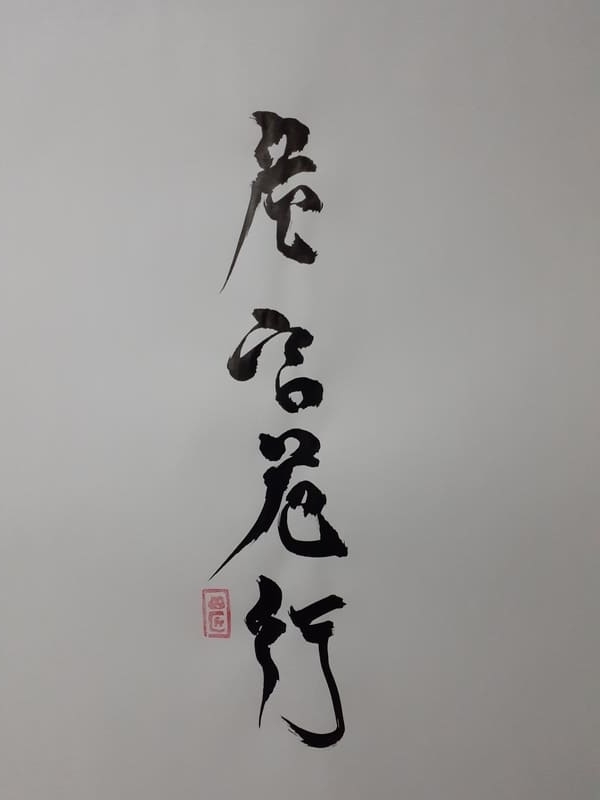 危言危行